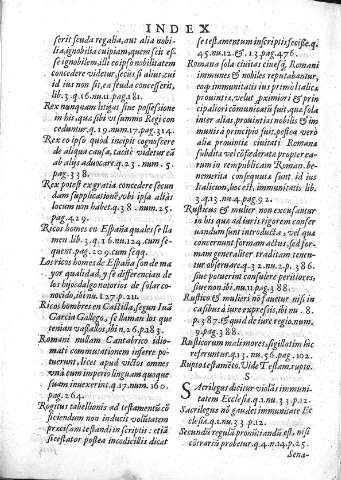 INDEX
serit feuda regalia, aut alia nobi-
lia, ignobili cuipiam, quem scit es-
se ignobilem, illi eo ipso nobilitatem
concedere videtur, secus si alius, cui
id ius non sit, ea feuda concesserit,
lib. 3. q. 16. nu. 11 pag. 181.
Rex nunquam litigat sine possessione
in his, quæ sibi vt summo Regi con
ceduntur. q. 19. num. 17. pag. 314.
Rex eo ipso quod incipit cognoscere
de aliqua causa, tacitè videtur eā
ab alijs aduocare. q. 23. num. 5.
pag. 338.
Rex potest ex gratia concedere secun
dam supplicationē, vbi ipsa aliàs
locum non habet. q. 38. num. 25.
pag. 429.
Ricos homes en España quales se lla
men lib. 3. q. 16. nu. 124. cum se-
quent. pag. 209. cum seqq.
Los ricos homes de España son de ma
yor qualidad, y se differencian de
los hijosdalgo notorios de solar co-
nocido, ibi nu. 127. p. 211.
Ricos hombres en Castilla, segun Iuā
Garcia Gallego, se llaman los que
tenian vasallos, ibi n. 26. p. 183.
Romani nullam Cantabrico idio-
mati commutationem inserere po-
tuerunt, licet apud victos omnes
vnà cum imperio linguam quoque
suam inuexerint. q. 17. num. 160.
pag. 264.
Rogitus tabellionis ad testamentū cō
ficiendum non inducit voluntatem
præcisam testandi in scriptis: etiā
si testator postea in codicillis dicat
se testamentum in scriptis fecisse. q.
45. nu. 12. & 13. pag. 476.
Romana sola ciuitas eiusq́; Romani
immunes & nobiles reputabantur,
eoq́; immunitatis ius primò Italica
prouincia, veluti proximiori & prin
cipaliori cōmunicari fuit, quæ sola
inter alias prouintias nobilis & im
munis à principio fuit, postea verò
alia prouintia ciuitati Romana
subdita vel cōfœderata propter ea-
rum in rempublicam Roman. be-
nemerita consequuta sunt id ius
Italicum, hoc est, immunitatis lib.
3. q. 13. nu. 4. pag. 92.
Rusticus & mulier non excusantur
in his quæ ad iuris rigorem conser
uandum sunt introducta, vel quæ
concernunt formam actus, sed for-
mam generaliter traditam tenen-
tur obseruare. q. 32. nu. 2. p. 386.
siue potuerint consulere peritiores,
siue non, ibi nu. 11. pag. 388.
Rustico & mulieri nō fauetur nisi in
casibus à iure expressis, ibi nu. 8.
p. 387. & quid de iure regio, num.
9. pag. 388.
Rusticorum mali mores, sigillatim hic
referuntur. q. 13. nu. 56. pag. 102.
Rupto testamēto. Vide Testam. rupto.
S
SAcrilegus dicitur violās immuni-
tatem Ecclesiæ. q. 1. nu. 33. p. 12.
Sacrilegus nō gaudet immunitate Ec
clesiæ. q. 1. nu. 33. p. 12.
Secundū regulā pronūtiandū est, nisi
cōtrariū probetur. q. 4. n. 14. p. 25.
Sena-